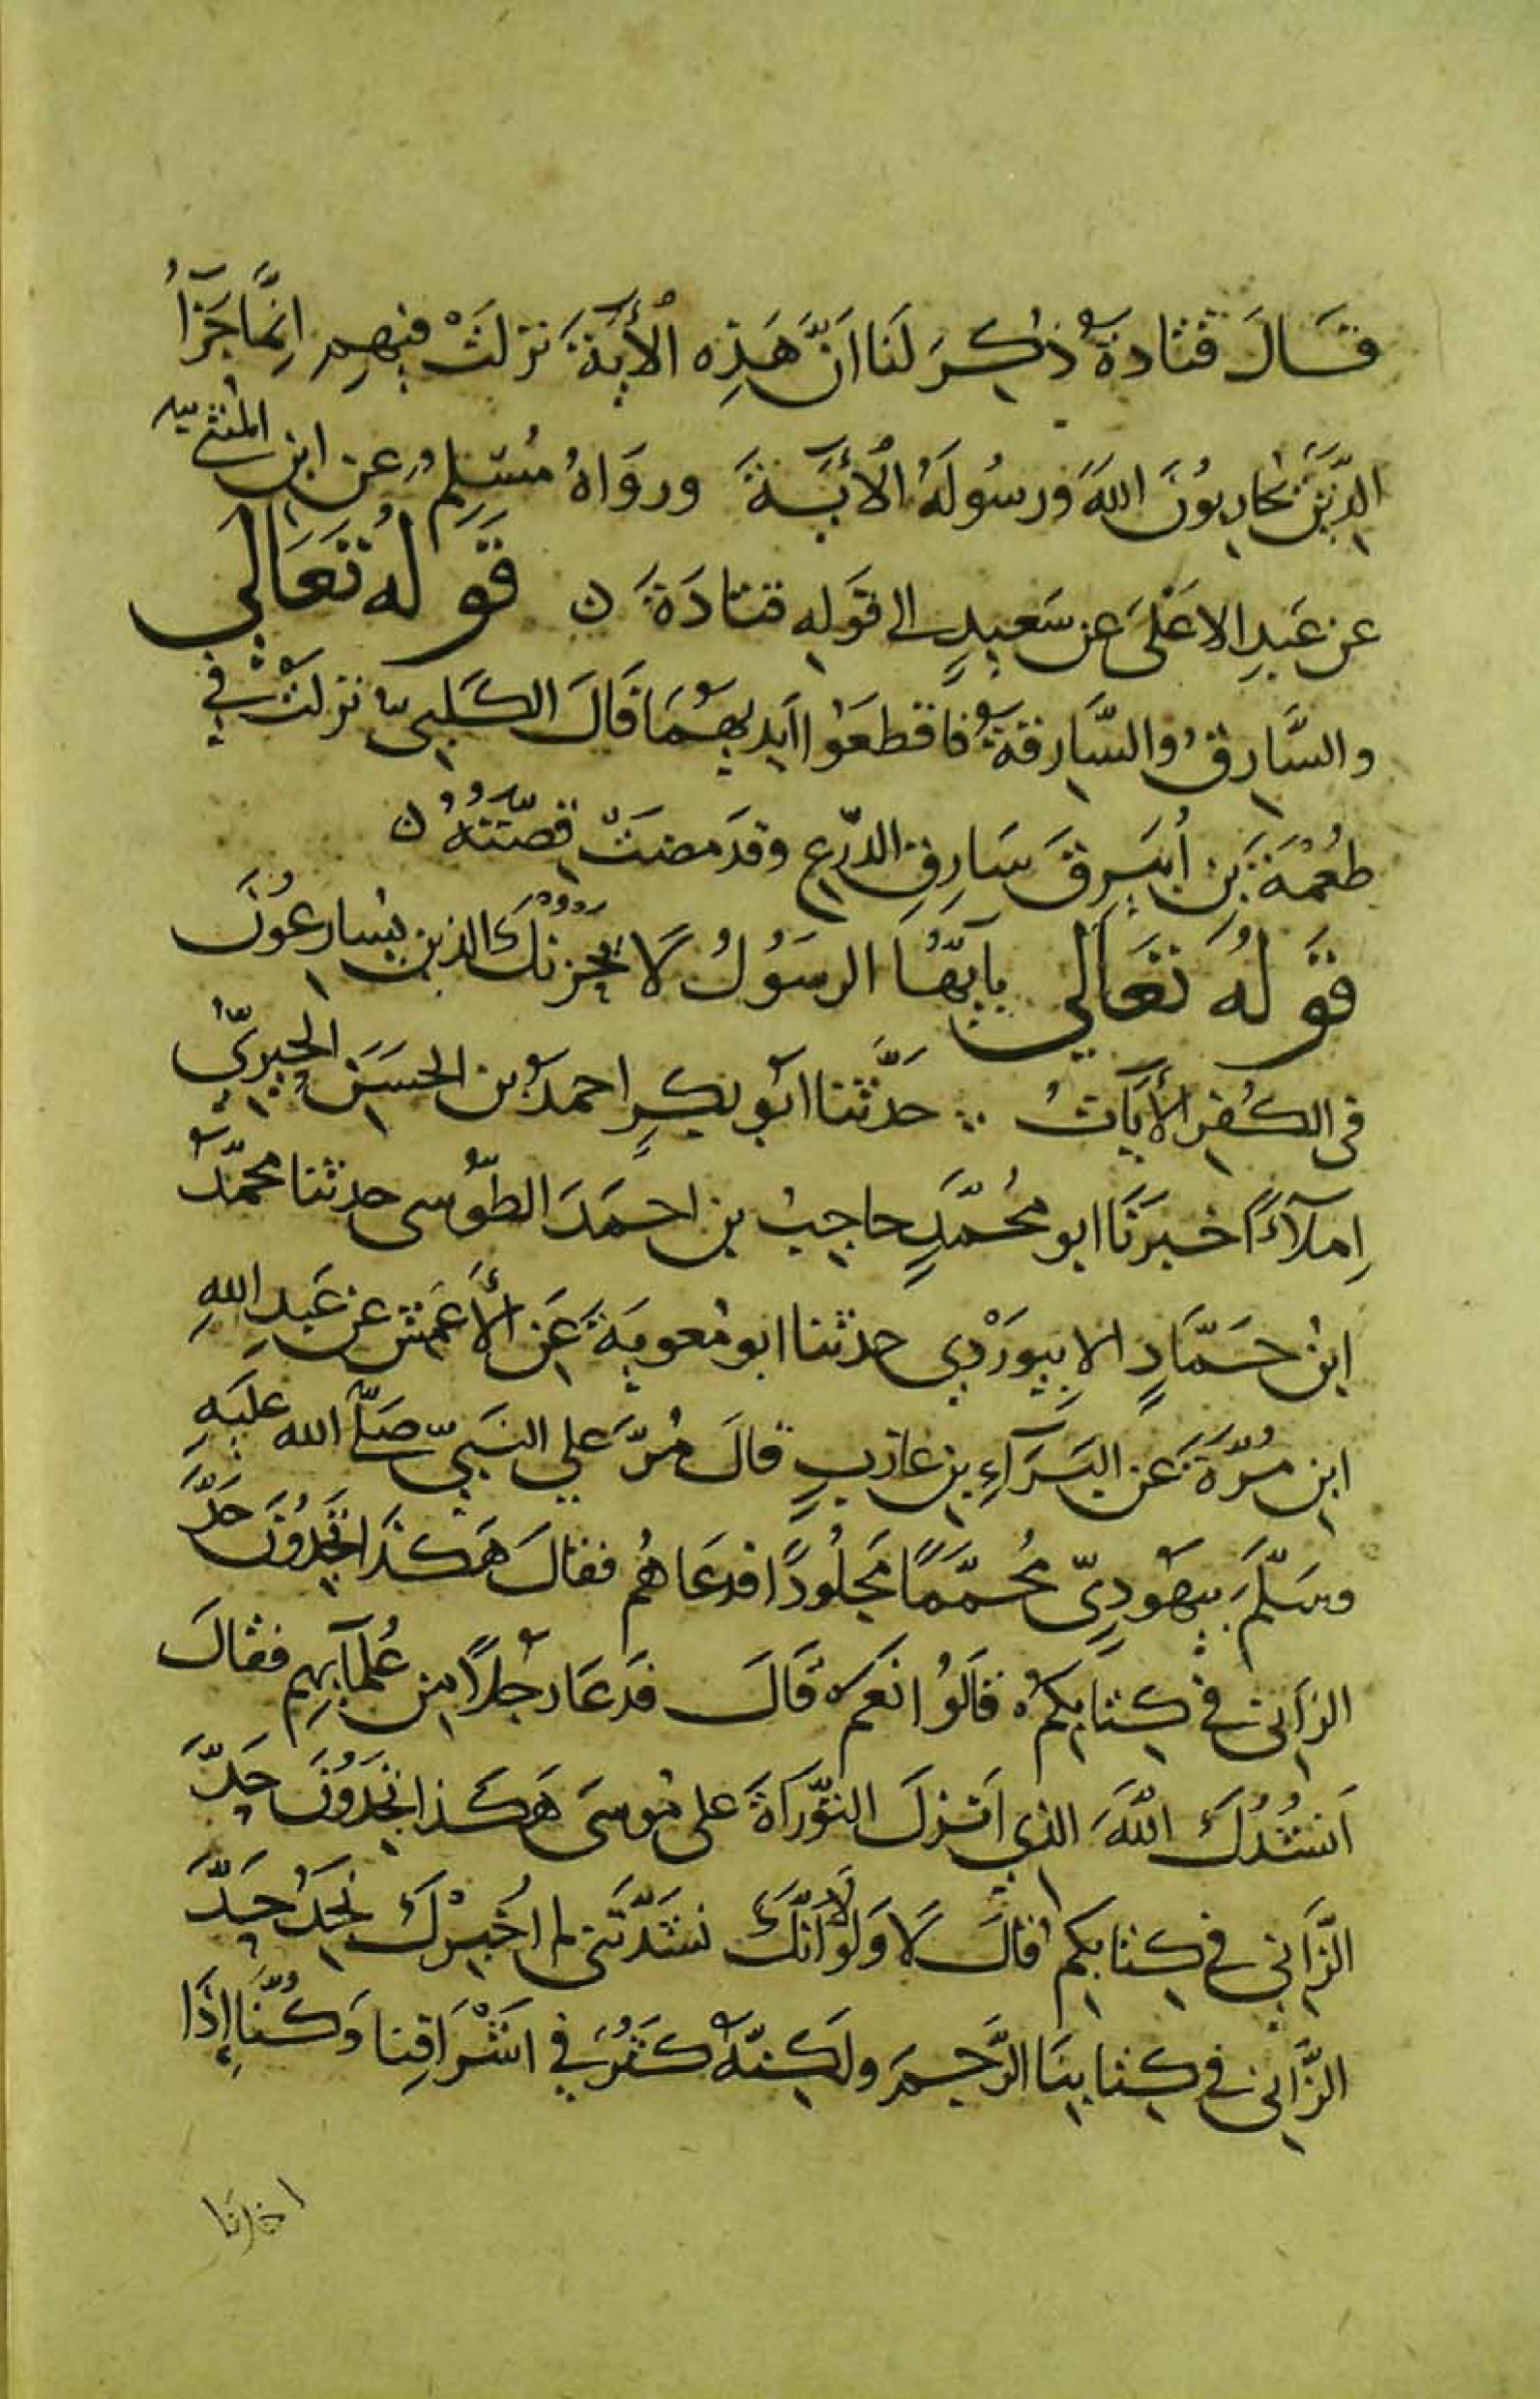 قَالَ قتادةُ ذُكِرَ لَنا انَّ هَذِه الْأيَةَ نزلَتْ فيهِم اِنَّما جَزآُ
الذِّينَ يُحَارِبُونَ اللهَ وَرسُولَهُ الْأيَةَ وروَاهُ مُسْلِمُ عن ابنِ المُثنّي
عن عَبدِ الاعْلَى عن سَعيدٍ الى قَولِه قتادَةَ ن قَولُهُ تَعَالَي
والسَّارِقُ والسَّارِقةُ فاقطعَوْا ايديهُمَا قَالَ الكَلبِيّ نزلَتْ في
طُعْمَةَ بنِ اُبَيرِقَ سَارِقِ الدّرْع وقدمَضَتْ قِصّتُهُ ن
قَولُهُ تَعَالَي ياَيّهَا الرسَوُلُ لَا يَحْزنْكَ الذين يُسارِعُونَ
فى الكُفرِ الأيَاتُ حَدَّثَنا ابُو بكرٍ احمدُ بن الحسَنِ الحِيرِيُّ
اِملآءً اخبرَنَا ابو مُحَمَّدٍ حاجِبُ بن احمَدَ الطّوُسى حدثنا محمَّدُ
ابنُ حَمّادٍ الابِيوَرْدِي حدثنا ابو مُعويةَ عَنِ الْأعَمش عن عَبدِ اللهِ
ابنِ مُرّةَ عَن البَرَآءِ بنِ عازبٍ قالَ مُرَّ علي النبَيّ صَلّي الله عليَهِ
وسَلّمَ بيَهُودِيّ مُحمَّمًا مَجلُودًا فدعَاهُم فقالَ هَكذَا تَجِدُونَ حَدَّ
الزاَنى في كِتابِكُم قالَوُا نعَم قَالَ فدعَا رجُلاً مِن عُلمآيِهِم فقالَ
اَنشُدُكَ اللّهَ الذي اَنزلَ التوّرَاةَ على مُوسىَ هَكَذا تجَدُونَ حَدَّ
الزَّانِي في كِتابِكم قالَ لَا وَلَولَا اَنّكَ نشَدْتَنى لم اُخبِرْكَ نجِدُ حَدَّ
الزَّانى في كِتابِنَا الرَّجمَ ولَكِنّهُ كَثُرَ في اشْرَافِنا وَكُنّا إِذَا
اخذنا